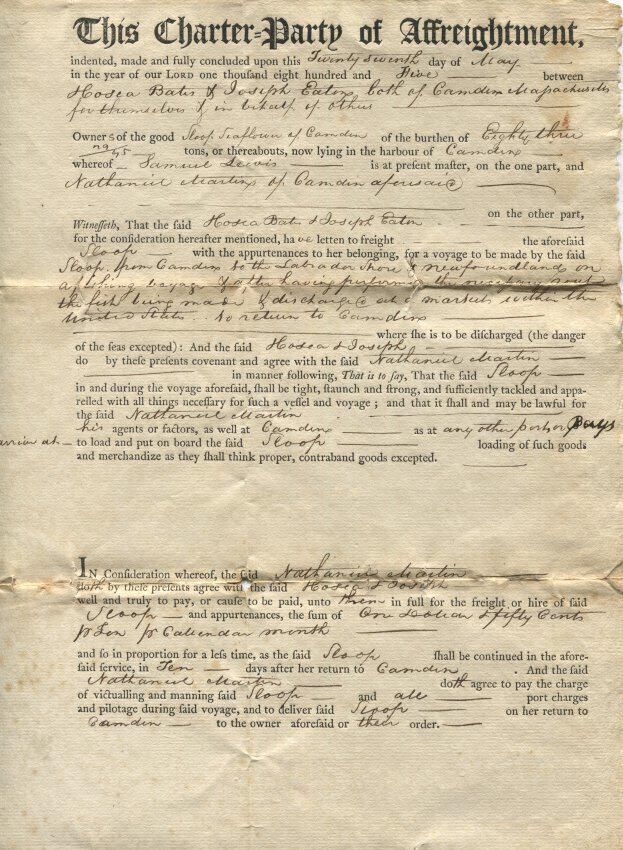 This Charter-Party of Affreightment,
indented, made and fully concluded upon this Twenty seventh day of May
in the year of our LORD one thousand eight hundred and Five between
Hosea Bates & Joseph Eaton both of Camden Massachusetts
for themselves & in behalf of others
Owners of the good Sloop Seaflower of Camden of the burthen of Eighty three
tons, or thereabouts, now lying in the harbour of Camden
whereof Samuel Lewis is at present master, on the one part, and
Nathaniel Martin of Camden aforesaid
on the other part,
Witnesseth, That the said Hosea Bates & Joseph Eaton
for the consideration hereafter mentioned, have letten to freight the aforesaid
Sloop with the appurtenances to her belonging, for a voyage to be made by the said
Sloop from Camden to the Labrador Shore & newfoundland on
a fishing voyage & after having performed the necessary
the fish being made & discharged at a market within the
United States to return to Camden
where she is to be discharged (the danger
of the seas excepted): And the said Hosea & Joseph
do by these presents covenant and agree with the said Nathaniel Martin
in manner following, That is to say, That the said Sloop
in and during the voyage aforesaid, shall be tight, staunch and strong, and sufficiently tackled and appa-
relled with all things necessary for such a vessel and voyage; and that it shall and may be lawful for
the said Nathaniel Martin
his agents or factors, as well at Camden as at any other port or
to load and put on board the said Sloop loading of such goods
and merchandize as they shall think proper, contraband goods excepted.
IN Consideration whereof, the said Nathaniel Martin
doth by these presents agree with the said Hosea & Joseph
well and truly to pay, or cause to be paid, unto them in full for the freight or hire of said
Sloop and appurtenances, the sum of One Dollar & fifty Cents
pr Ton pr Callendar month
and so in proportion for a less time, as the said Sloop shall be continued in the afore-
said service, in Ten days after her return to Camden. And the said
Nathaniel Martin doth agree to pay the charge
of victualling and manning said Sloop and all port charges
and pilotage during said voyage, and to deliver said Sloop on her return to
Camden to the owner aforesaid or their order.